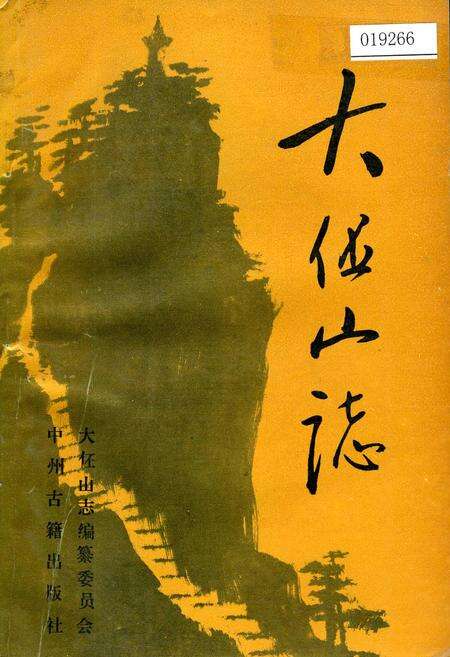 019266
大伾山誌
大伾山志编纂委员会
中州古籍出版社